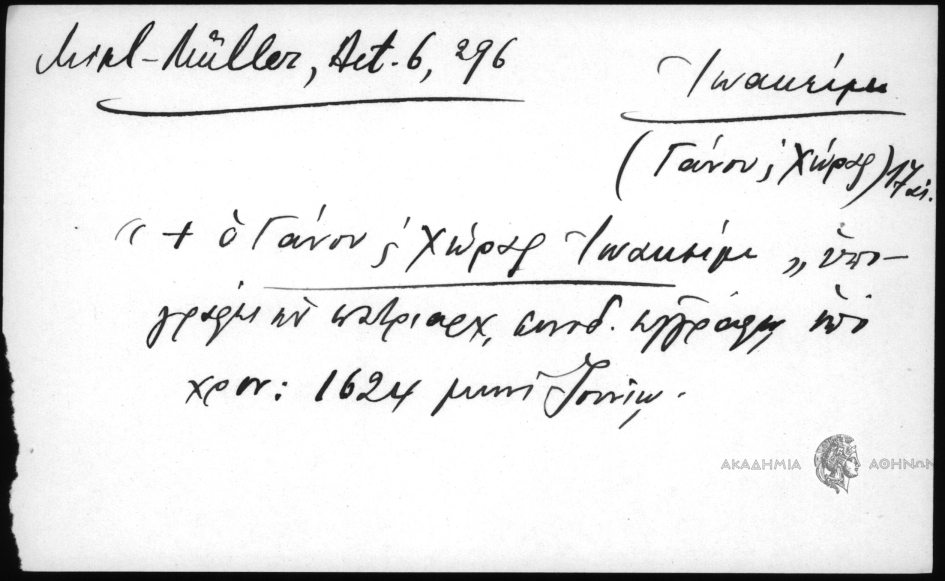 Mikl-Müller, Act. 6, 296
Ἰωακείμ
(Γάνου ϛ Χώρας) 17 αἰ.
"+ ὁ Γάνου ϛ Χώρας Ἰωακείμ „ ὑπο-
γράφει ἐν πατριαρχ. συνοδ. ἐγγράφῳ ὑπὸ
χρον: 1624 μηνὶ Ἰουνίῳ.
ΑΚΑΔΗΜΙΑ ΑΘΗΝΩΝ